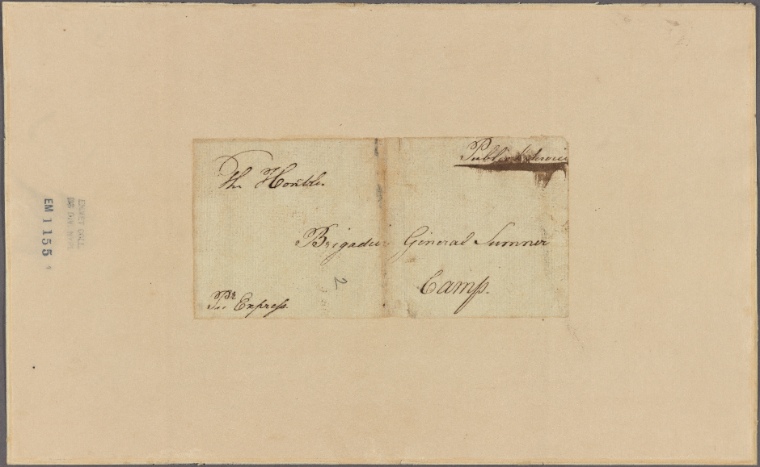 Public Service
The Honble
Brigadier General Sumner
Camp.
Pr Express
2
EM 1155
EMMET COLL.